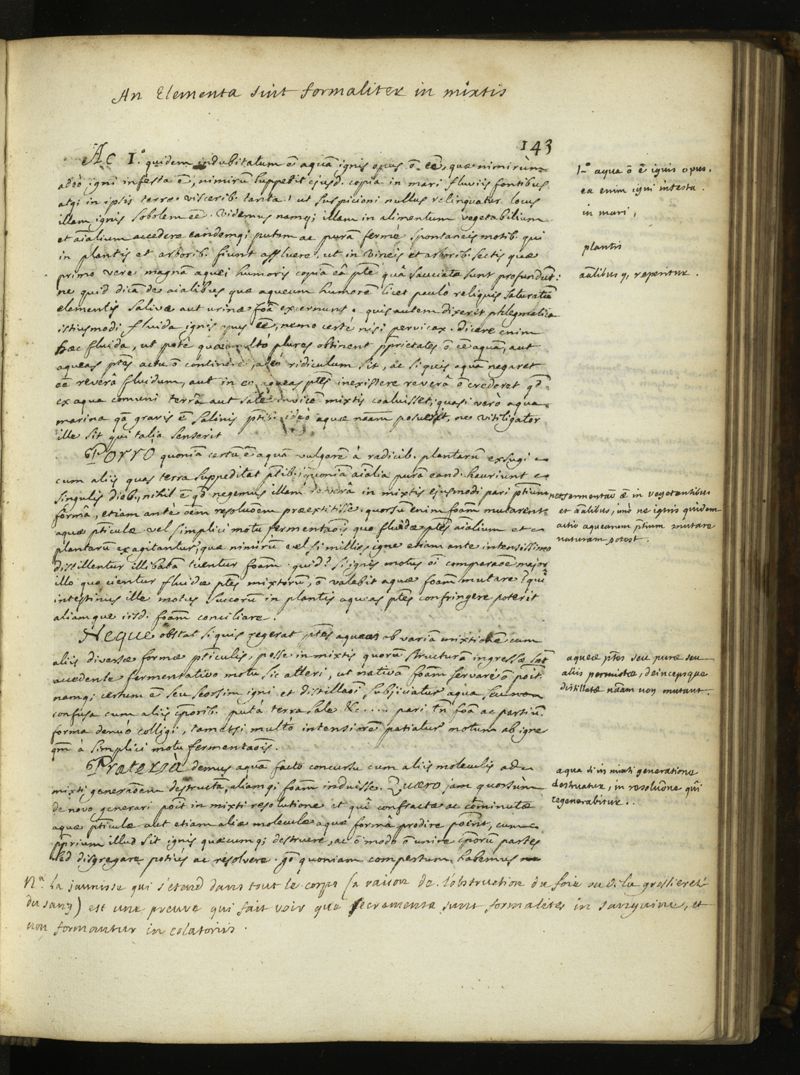 An Elementa sint formaliter in mixtis
143
Ac 1.º quidem indubitatum ē aquā ignis opus ō eē, quæ nimirùm
adeò igni infesta ē, nimirū suppetit ejusd. copia in mari fluviis fontibus
atq; in ipsis terræ viscerib. tanta ut suspicioni nullus relinquatur locus
illam ignis sobolem eē. Videmus namq; illam in alimentum vegetabilium
et aīalium accedere eandemq; putam ac puram fermè spontaneis motib. qui
in plantis et arborib. fiunt affluere, ut in vineis et arborib. sectis quæ
primo vere magnam aquei humoris copiā eâ pte quâ sauciatæ sunt profundūt:
ne quid dicā de aīalibus quæ aqueum humorē licet paulò reliquis saturatiū
elementis salivæ aut urinæ foā excernunt. quis autem dixerit phlegmatia
istiusmodi fluida ignis opus eē, nemo certè nisi pervicax. dicere enim
hæc fluida, ut potè quæ multò plures obtinent pprietates ō eē aquā, aut
aqueas ptes actu ō continere, adeò ridiculum sit, ac si quis aquā negaret
eē reverâ fluidum, aut in eo aqueas ptes inexistere reverâ ō crederet qd
ex aqua comuni terrā aut sale invicē mixtis coaluisset; quasi verò aqua
marina qa gravis ē salinis ptib. ideò aquæ nāam posuerit, ne vitiligator
ille sit qui talia senserit
Porro quoniā certū ē aquā vulgarē à radicib. plantarū exsugi
cum aliis quas terra suppeditat ptib. quoniā aīalia purā eand. hauriunt
singulis dieb. nihil ē qd negemus illam in mixtis ejusmodi pari ptium
formâ, etiam ante oēm resolūoem præextitisse. quorsū enim foam mutarent
aquæ pticulæ vel simplici motu fermentaōis quo fluidæ ptes aīalium et
plantarū exagitantur, quæ nimirū vel si millies igne etiam ante intensissimo
distillentur illibatā tuentur foam. quid? si ignis motus ōi comparaōe major
illo quo cientur fluidæ ptes mixtorū, ō valebit aquæ foam mutare? qui
intestinus ille motus succorū in plantis aqueas ptes confringere poterit
aliamque iisd. foam conciliare.
Neque obstat si quis regerat ptes aqueas ob variā mixtionē cum
aliis diversæ formæ pticulis, posse in mixtis quorū structuram ingressæ sāt
accedente fermentativo motu sic alteri, ut nativā foam servare ō poīt
namq; certum ē seu seorsim igni et distillaōi subjiciatur aqua seu non
confusa cum aliis cporib. putà terra sale &c .... pari tn foâ ac partium
forma denuo colligi, tametsi multò intensiorē patiatur motum ab igne
qm à simplici motu fermentaōis.
Præterea demus aquā facto concursu cum aliis moleculis ad
mixti generaōem destructā, aliamq; foam induisse. Quæro jam quorsum
de novo generari poīt in mixti resolutione et qui confractæ ac cōminutæ
aquæ pticulæ aut etiam aliæ moleculæ aquæ formâ prodire poēnt, cum
pprium illud sit ignis quæcumq; destruere, ac ō modò ō unire cporū partes
sed disgregare potius ac resolvere. go quoniam compertum habemus
1.º aqua ō ē ignis opus.
ea enim igni infesta.
in mari,
plantis
aālibus q; reperitur.
permanētū ē in vegetantibus
et aālibus, imò ne ignis quidem
actio aquearum ptium mutare
naturam potest.
aqueæ ptes seu puræ seu
aliis permixtæ, deincepsque
distillatæ nāam non mutant.
aqua si in mixti generatione
destruatur, in resolūone qui
regenerabitur..
Nª. La jaunisse qui s'etend dans tout le corps (a raison de l'obstruction du foie ou de la grossiereté
du sang) est une preuve qui fait voir que secrementa sunt formaliter in sanguine, et
non formantur in colatoriis.